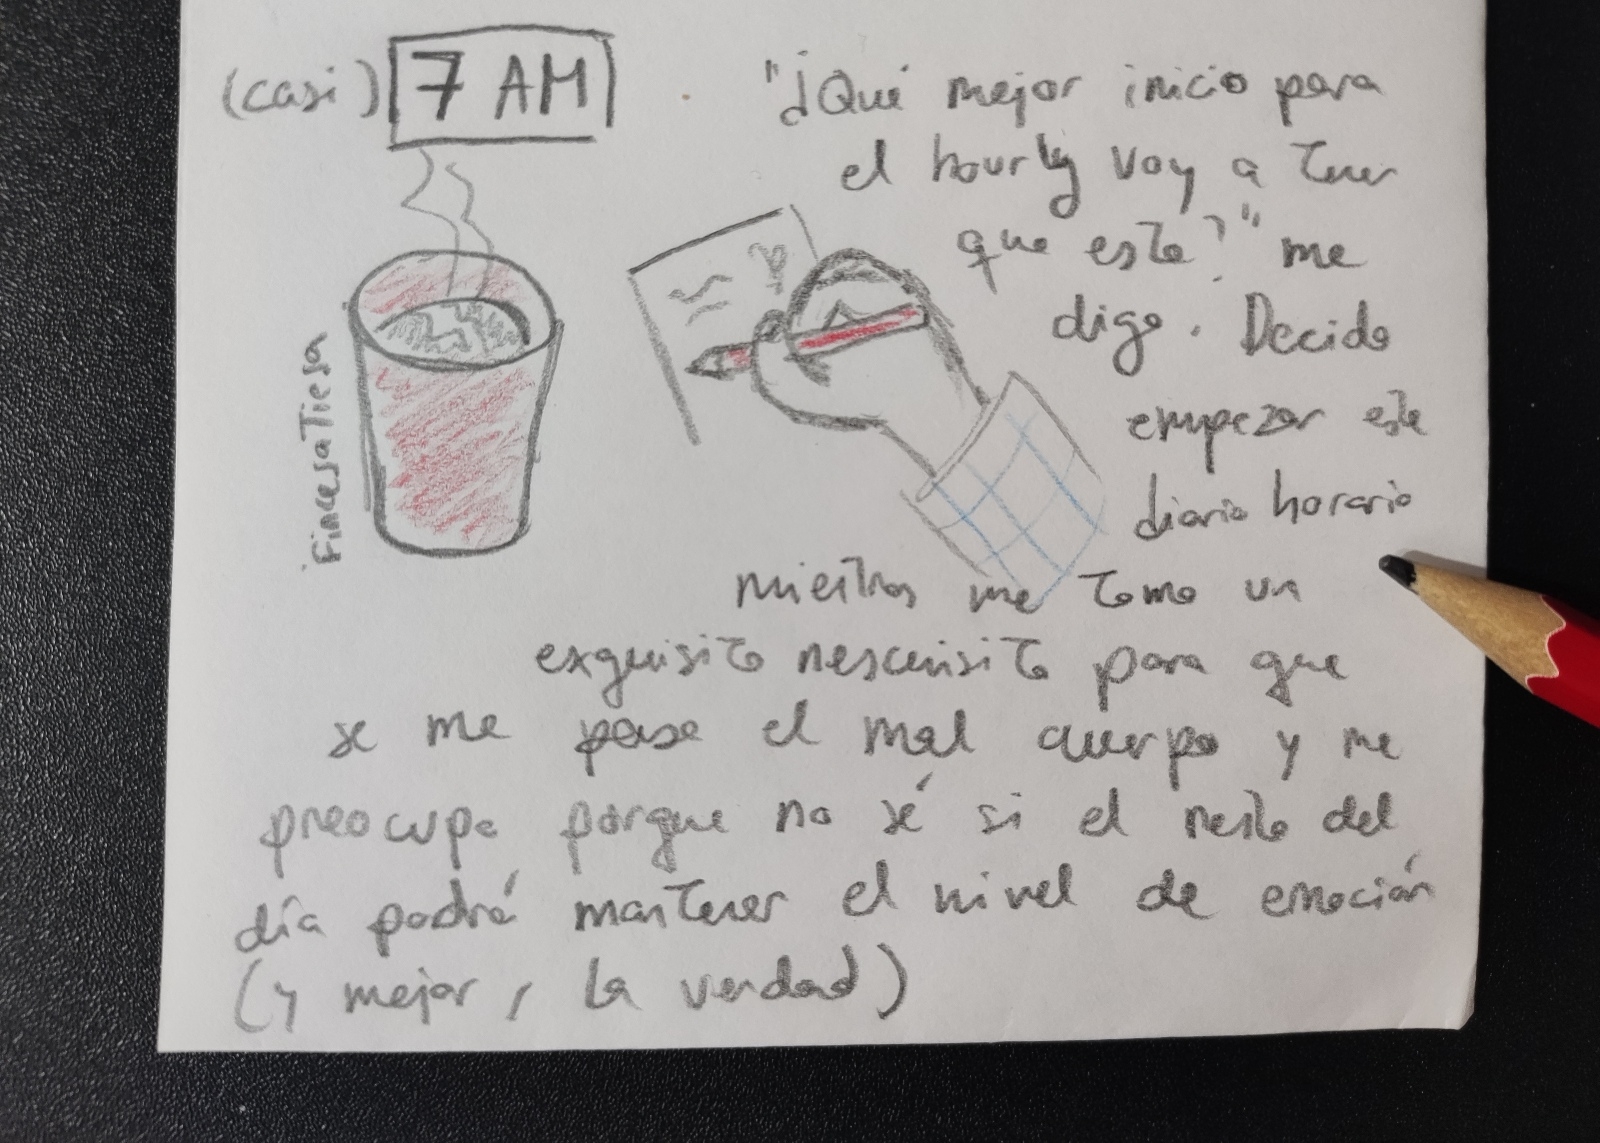 (casi) 7 AM
"¿Qué mejor inicio para
el hourly voy a tener
que este?" me
digo. Decido
empezar este
diario horario
mientras me tomo un
exquisito nescensito para que
se me pase el mal cuerpo y me
preocupo porque no sé si el resto del
día podré mantener el nivel de emoción
(y mejor, la verdad)
FincesaTiesa